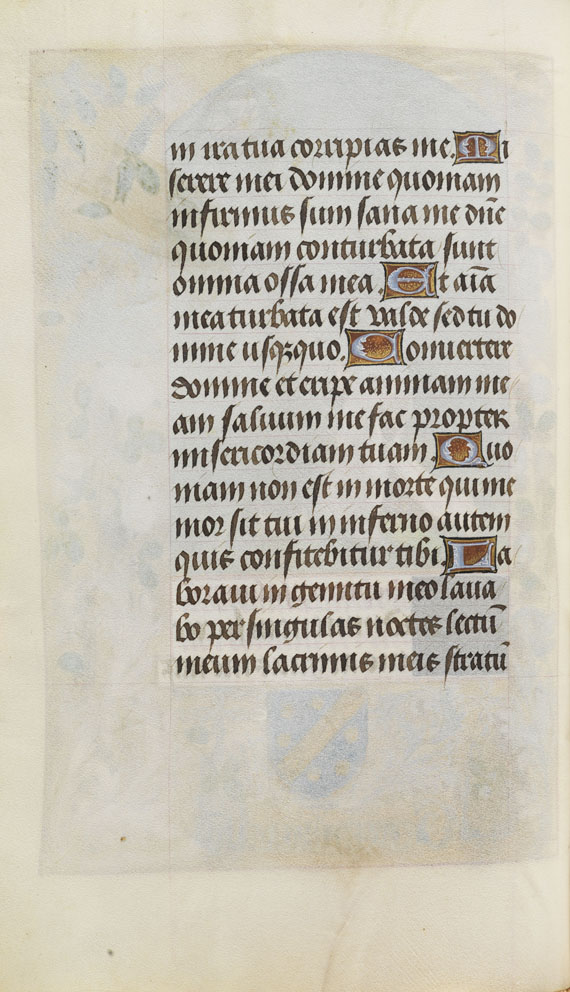 in ira tua corripias me. Mi
serere mei domine quoniam
infirmus sum sana me dñe
quoniam conturbata sunt
omnia ossa mea. Et aĩa
mea turbata est valde sed tu do
mine usq;quo. Conuertere
domine et eripe animam me
am saluum me fac propter
misericordiam tuam. Quo
niam non est in morte qui me
mor sit tui in inferno autem
quis confitebitur tibi. La
boraui in gemitu meo laua
bo per singulas noctes lectũ
meum lacrimis meis stratũ